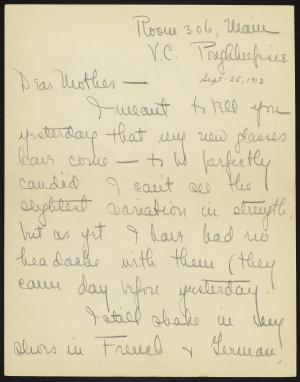 Room 306, Main
V.C. Poughkeepsie
Sept. 25, 1913
Dear Mother —
I meant to tell you
yesterday that my new glasses
have come — to be perfectly
candid I can't see the
slightest variation in strength,
but as yet I have had no
headache with them (they
came day before yesterday.
I still shake in my
shoes in French & German,